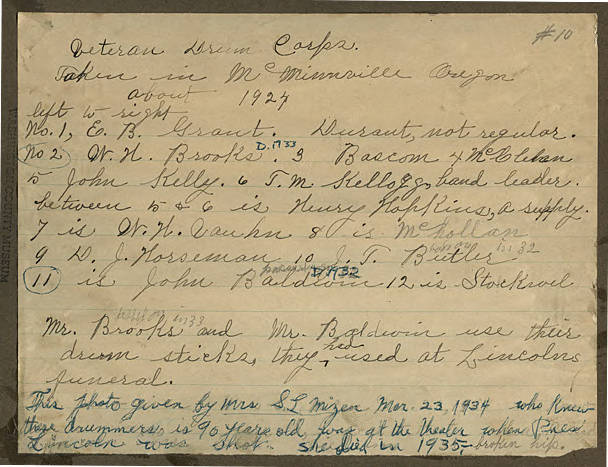 #10
Veteran Drum Corps.
Taken in McMinnville Oregon
about 1927
left to right
No. 1, E. B. Grant. Durant, not regular.
No 2) W. H. Brooks. D. 1933 3 Bascom 4 McColehan
5 John Kelly. 6 T. M Kellogg, band leader.
between 5 & 6 is Henry Hopkins, a supply.
7 is W. H. Vauhn 8 is McKollan
9 D. J. Horseman 10 J. T. Butler in 32
11 is John Baldwin D 1932 12 is Stockwel
in 33
Mr. Brooks and Mr. Baldwin use their
drum sticks, they had used at Lincolns
funeral.
This photo given by Mrs S. L Mizen Mar. 23, 1934 who knew
these drummers, is 90 years old, was at the theater when Pres
Lincoln was shot. she died in 1935, - broken hip.
COUNTY MUSEUM